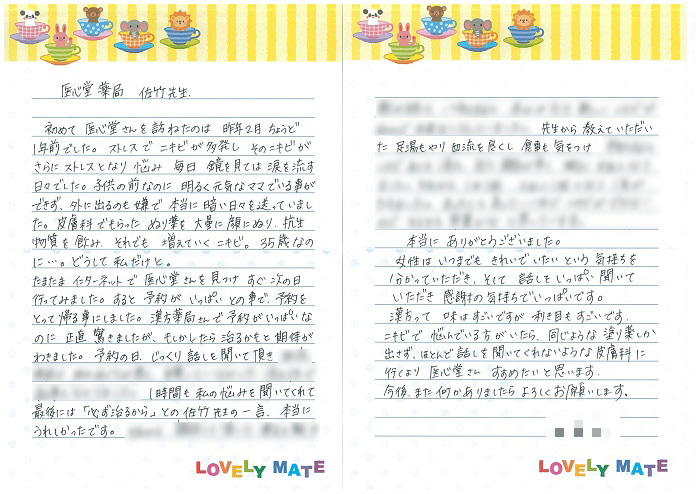 医心堂薬局 佐竹先生.
初めて 医心堂さんを訪ねたのは 昨年2月 ちょうど
1年前でした。ストレスで ニキビが多発し そのニキビが
さらにストレスとなり 悩み 毎日 鏡を見ては 涙を流す
日々でした。子供の前なのに 明るく元気なママでいる事が
できず、外に出るのも嫌で 本当に暗い日々を送っていまし
た。皮膚科でもらった ぬり薬を 大量に顔にぬり、抗生
物質を飲み それでも 増えていくニキビ。35歳なの
に…。どうして私だけと。
たまたま インターネットで 医心堂さんを見つけ すぐ次の日
行ってみました。すると 予約が いっぱいとの事で、予約を
とって帰る事にしました。漢方薬局さんで 予約がいっぱいな
のに 正直 驚きましたが、もしかしたら治るかもと 期待が
わきました。予約の日、じっくり 話しを聞いて頂き
1時間も 私の悩みを聞いてくれて
最後には「必ず治るから」との佐竹先生の一言、本当に
うれしかったです。
LOVELY MATE
先生から 教えていただい
た 足湯もやり 血流を良くし 食事も気をつけ
本当に ありがとうございました。
女性は いつまでも きれいでいたいという 気持ちを
分かっていただき、そして 話しをいっぱい 聞いて
いただき 感謝の気持ちでいっぱいです。
漢方って 味はすごいですが 利き目もすごいです。
ニキビで 悩んでいる方がいたら、同じような 塗り薬しか
出さず、ほとんど話しを聞いてくれないような皮膚科に
行くより 医心堂さん すすめたいと思います。
今後、また何かありましたら よろしくお願いします。
LOVELY MATE